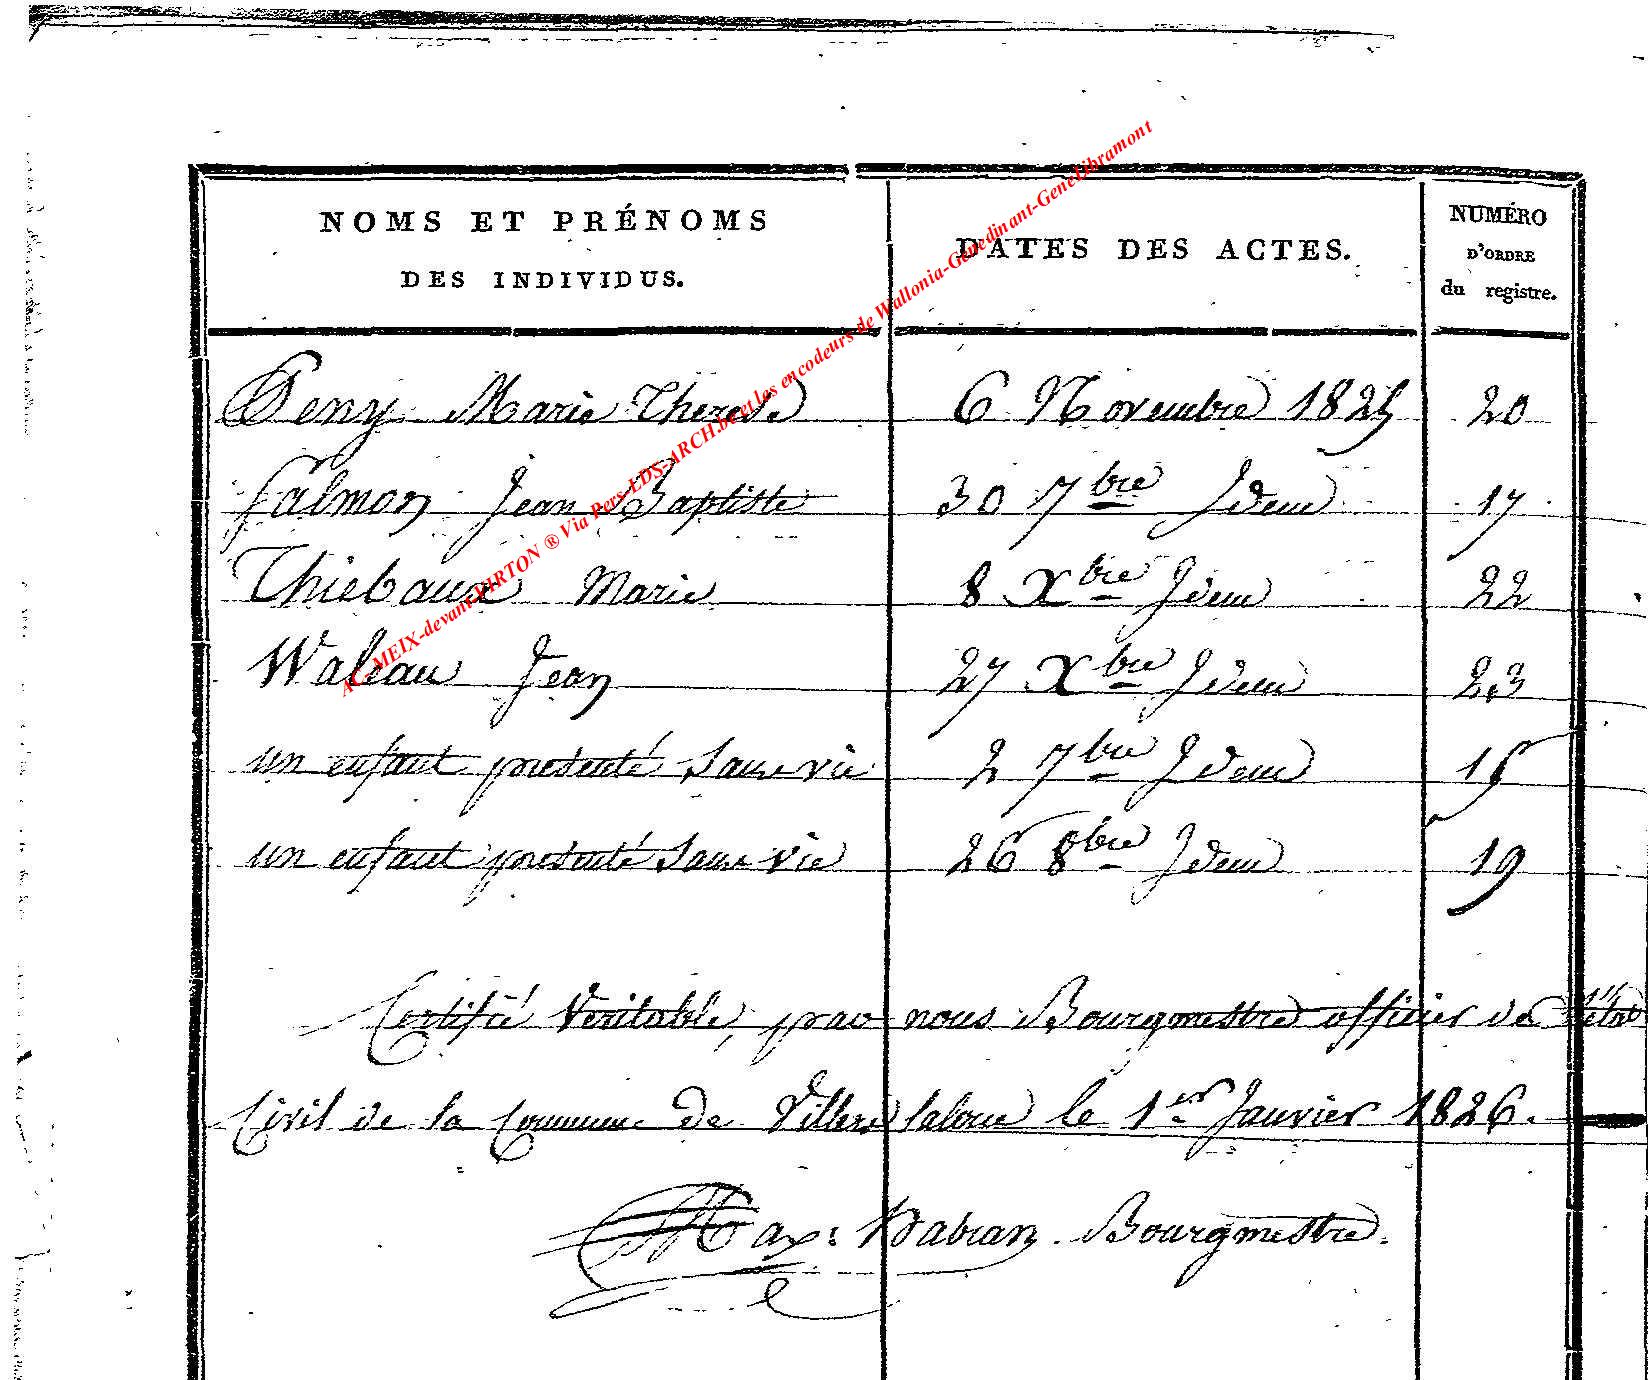 NOMS ET PRÉNOMS DES INDIVIDUS.
DATES DES ACTES.
NUMÉRO D'ORDRE du registre.
Marie Therese 6 Novembre 1825 20
Salmon Jean Baptiste 30 7bre Idem 17
Thiebaux Marie 8 Xbre Idem 22
Waleau Jean 27 Xbre Idem 23
un enfant presenté Sans vie 2 7bre Idem 15
un enfant presenté Sans vie 26 8bre Idem 19
Certifié Veritable, par nous Bourgmestre officier de l'état
Civil de la Commune de Villers laloue le 1er Janvier 1826.
Max: Bourgmestre.
AC-MEIX-devant-VIRTON ® Via Pers-LDS-ARCH.be et les encodeurs de Wallonia-Genedinant-GeneLibramont